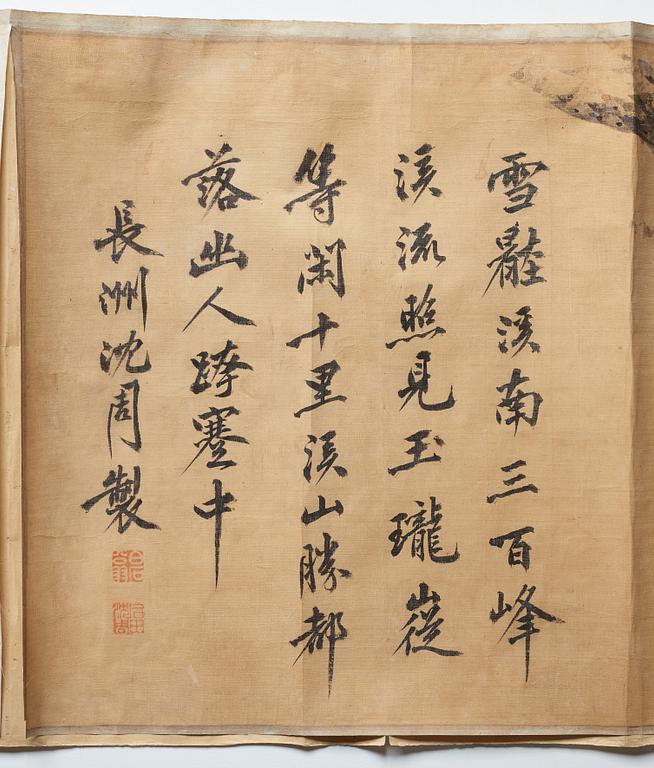 雪壓溪南三百峰
溪流照見玉瓏嵷
等閑十里溪山勝都
落幽人跨蹇中
長洲沈周製
白石翁